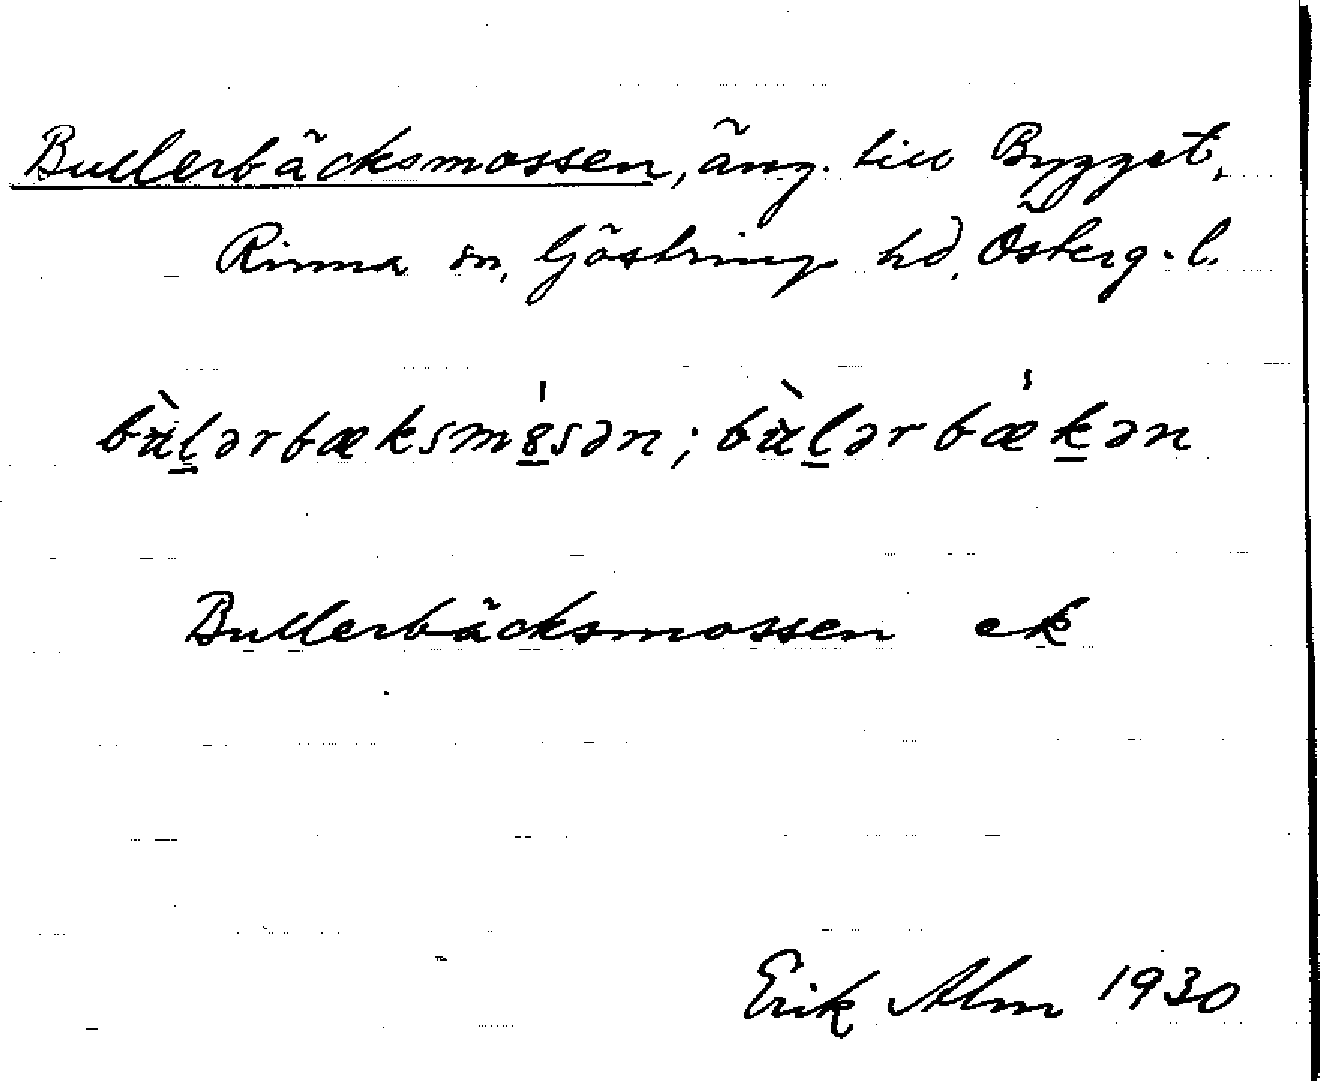 Bullerbäcksmossen, äng. till Bygget,
Rinna sn, Göstrings hd, Österg. l.
bu̇̀l̠ərbæksmȯ̀8̠sən; bu̇̀l̠ərbæk̠ən
Bullerbäcksmossen ek
Erik Alm 1930